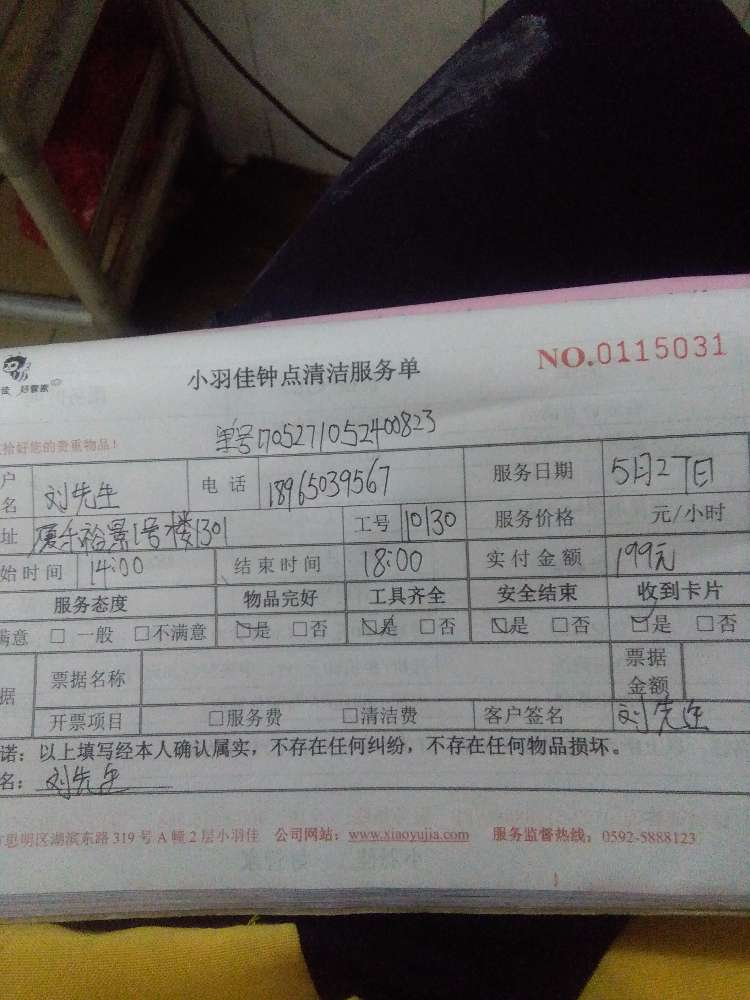 佳 好管家
小羽佳钟点清洁服务单
NO.0115031
拾好您的贵重物品!
单号1705271052400823
户名 刘先生 电话 18965039567 服务日期 5月27日
址 厦禾裕景1号楼1301 工号 10130 服务价格 元/小时
始时间 14:00 结束时间 18:00 实付金额 199元
服务态度 物品完好 工具齐全 安全结束 收到卡片
满意 □ 一般 □不满意 ☑是 □否 ☑是 □否 ☑是 □否 ☑是 □否
据 票据名称 票据金额
开票项目 □服务费 □清洁费 客户签名 刘先生
诺:以上填写经本人确认属实,不存在任何纠纷,不存在任何物品损坏。
名:刘先生
思明区湖滨东路 319 号 A 幢 2 层小羽佳 公司网站:www.xiaoyujia.com 服务监督热线:0592-5888123